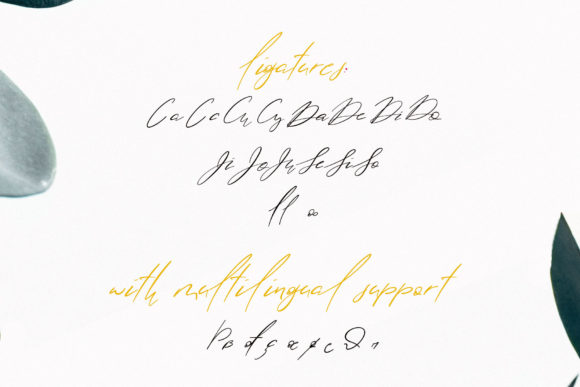 ligatures:
Ca Ce Cu Cy Da De Di Do
Ji Jo Ju Se Si So
ll oo
with multilingual support
ß đ ç æ ø